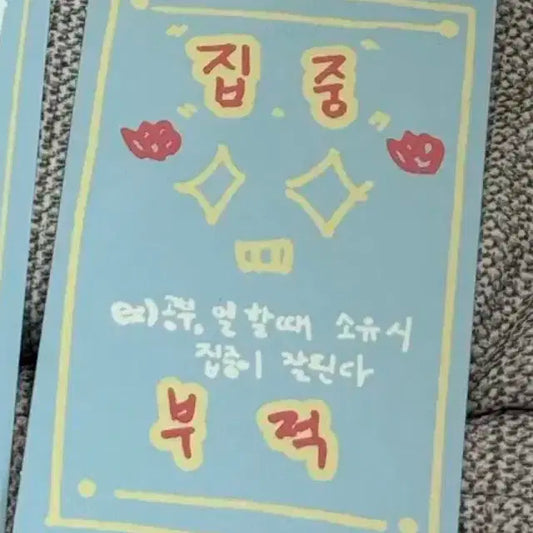 집중
ex) 공부, 일 할때 소유시
집중이 잘된다
부적